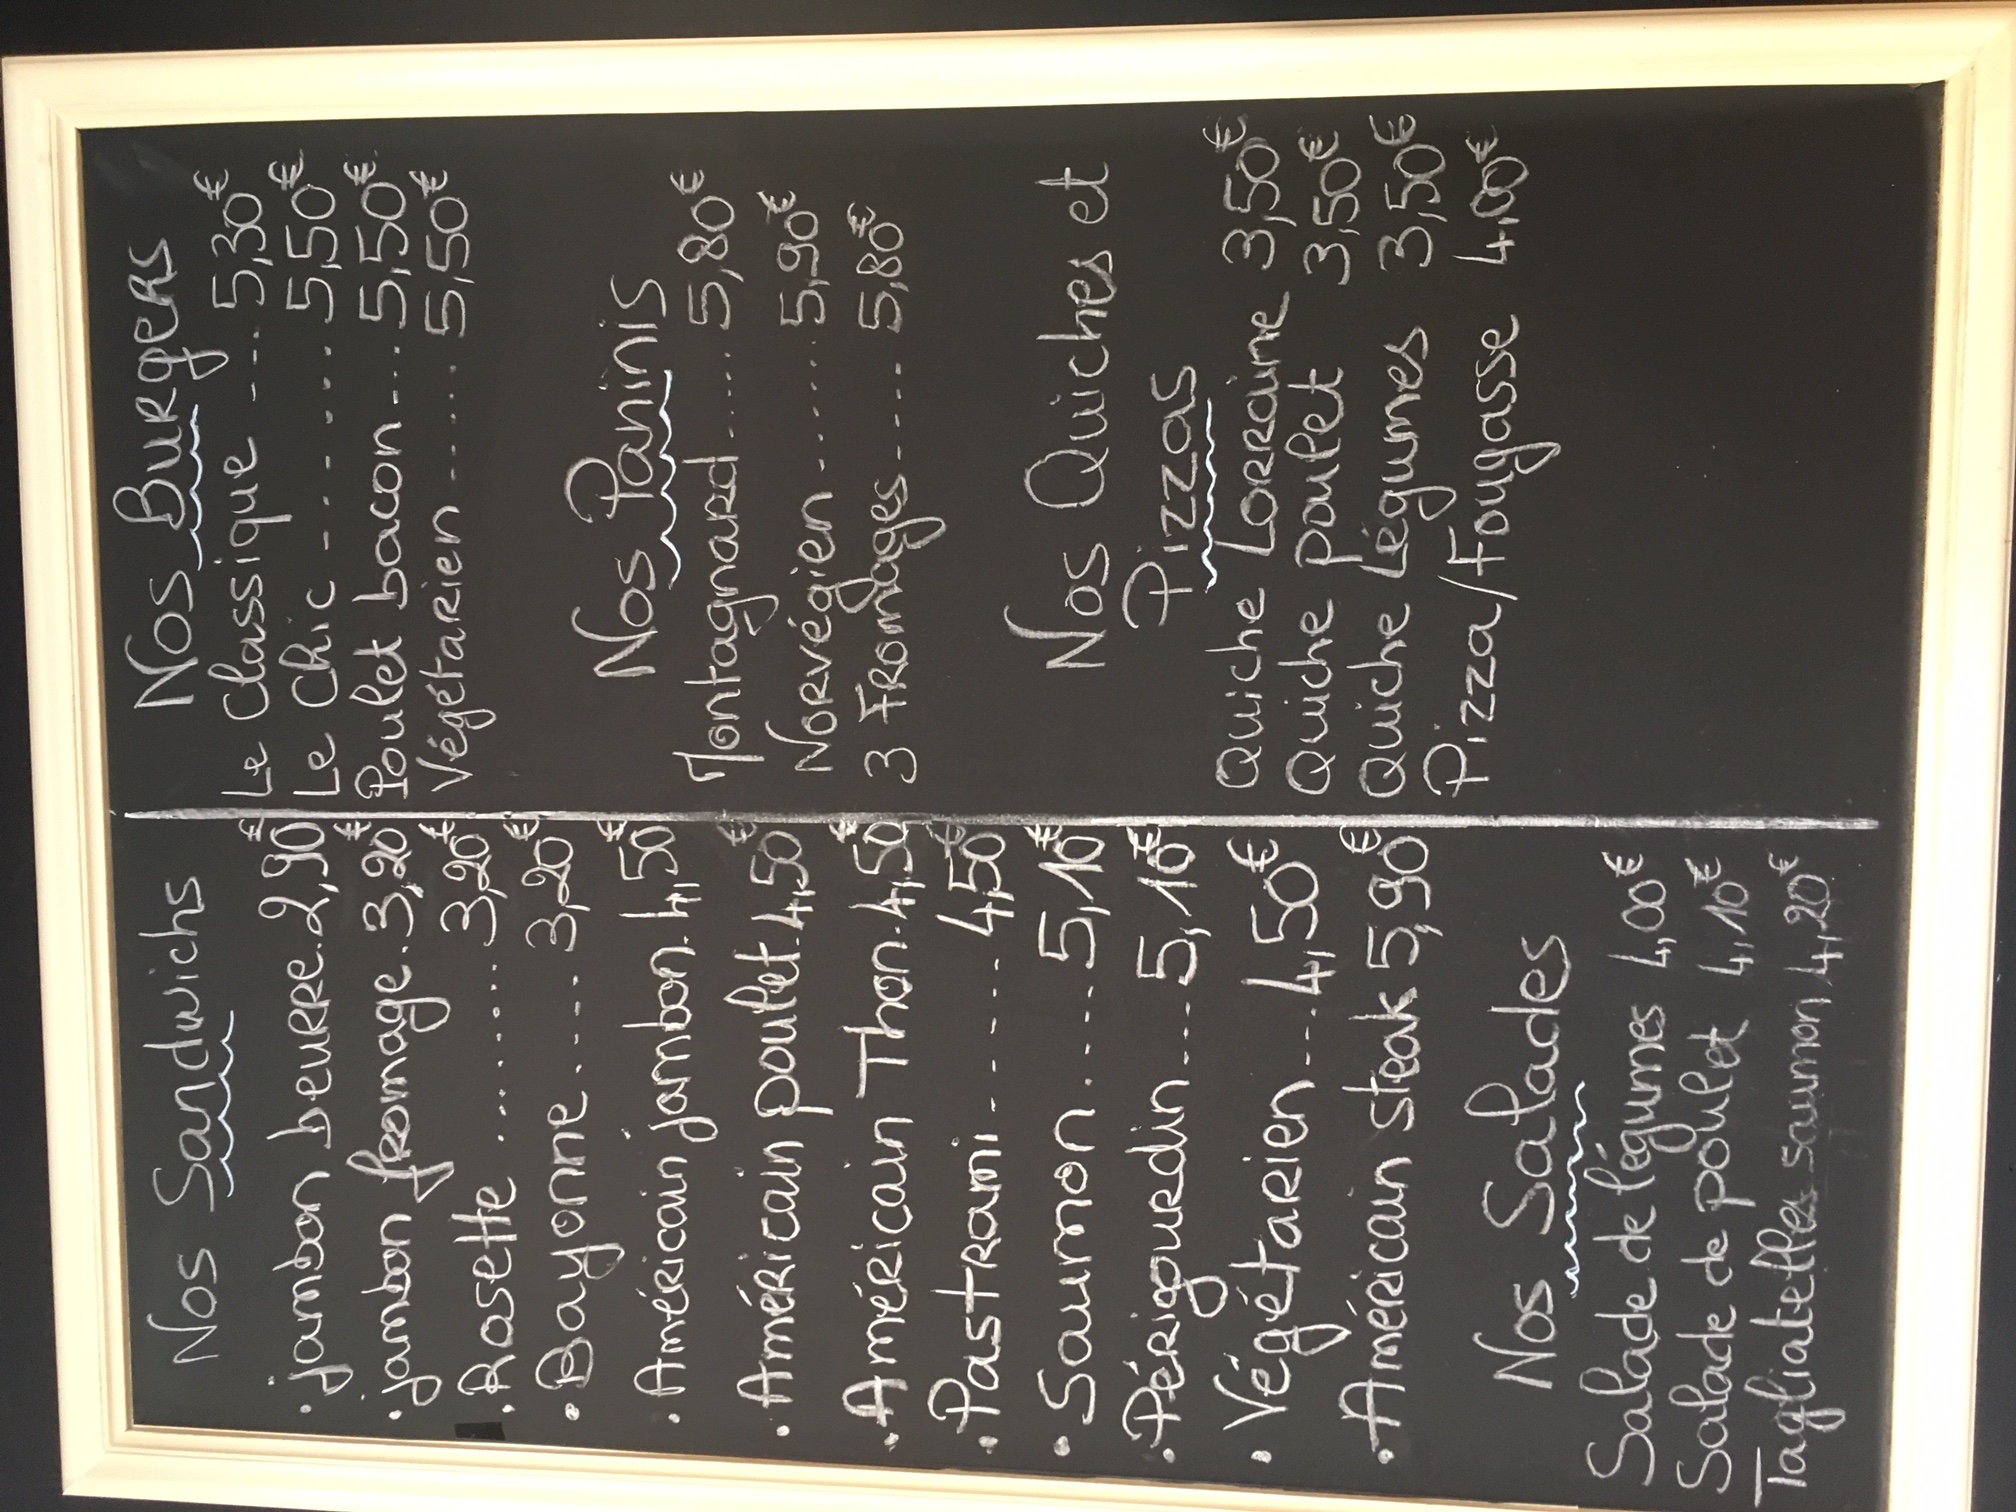 Nos Sandwichs
. jambon beurre. 2,90€
. jambon fromage. 3,20€
. Rosette ......... 3,20€
. Bayonne ..... 3,20€
. Américain jambon. 4,50€
. Américain poulet. 4,50€
. Américain Thon. 4,50€
. Pastrami ------ 4,50€
. Saumon ..... 5,10€
. Périgourdin .... 5,10€
. Végétarien --- 4,50€
. Américain steak 5,90€
Nos Salades
Salade de légumes 4,00€
Salade de poulet 4,10€
Tagliatelles saumon 4,20€
Nos Burgers
Le Classique --- 5,30€
Le Chic ------- 5,50€
Poulet bacon --- 5,50€
Végétarien ..... 5,50€
Nos Paninis
Montagnard ..... 5,80€
Norvégien ...... 5,90€
3 Fromages ---- 5,80€
Nos Quiches et
Pizzas
Quiche Lorraine 3,50€
Quiche poulet 3,50€
Quiche Légumes 3,50€
Pizza/Fougasse 4,00€